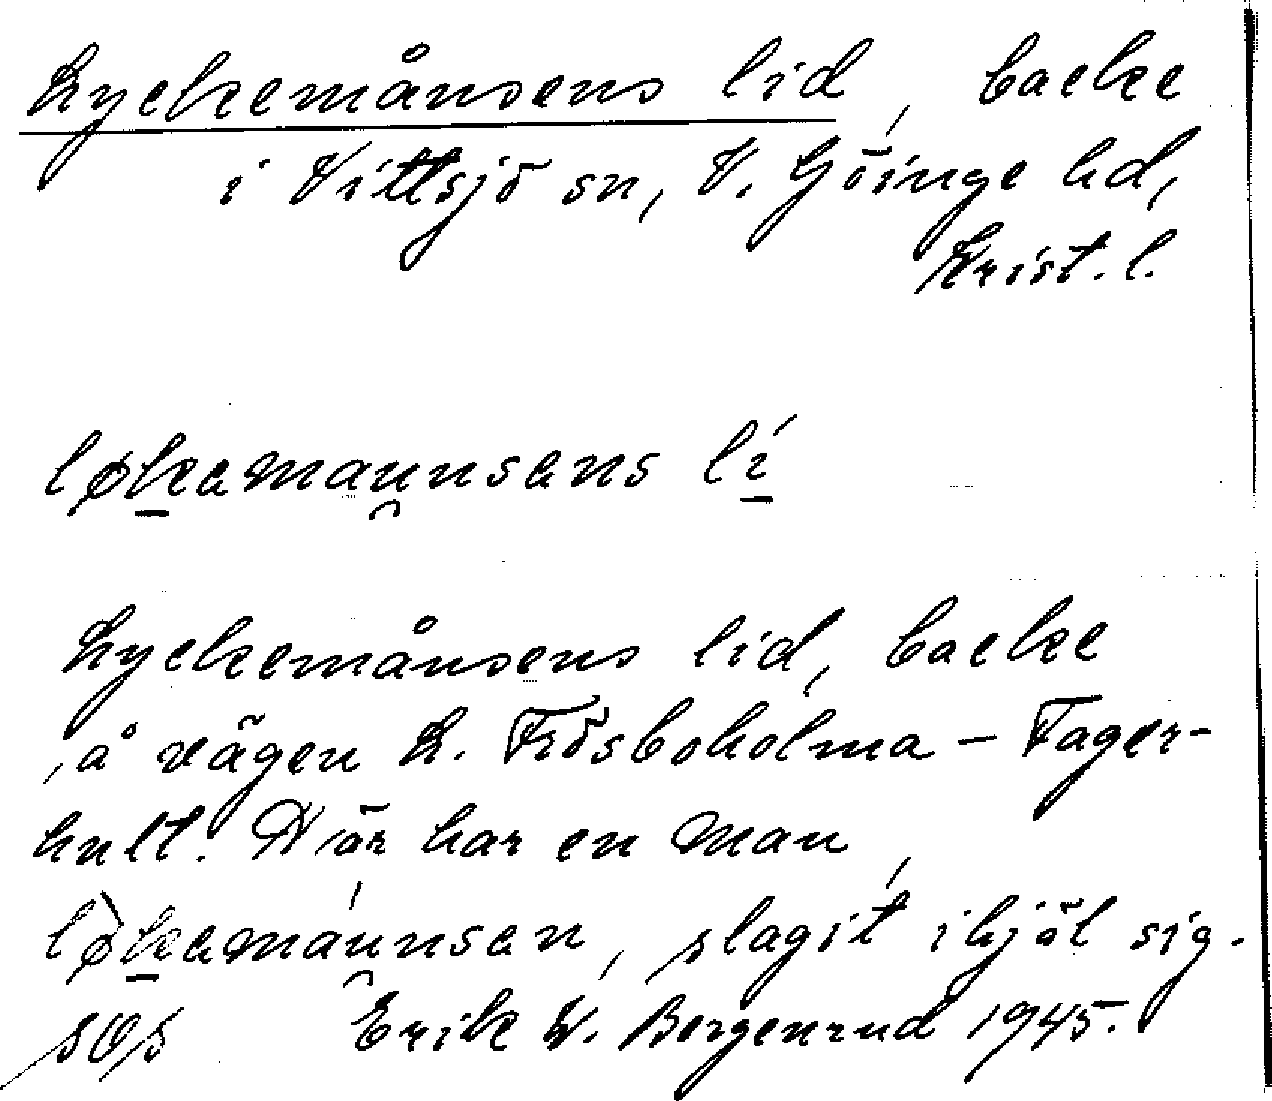 Lyckemånsens lid, backe
i Vittsjö sn, V. Göinge hd,
Krist. l.
løkamaunsans lí
Lyckemånsens lid, backe
å vägen L. Frösboholma – Fager-
hult. Här har en man,
løkamaunsan, slagit ihjäl sig.
Erik W. Bergenrud 1945.